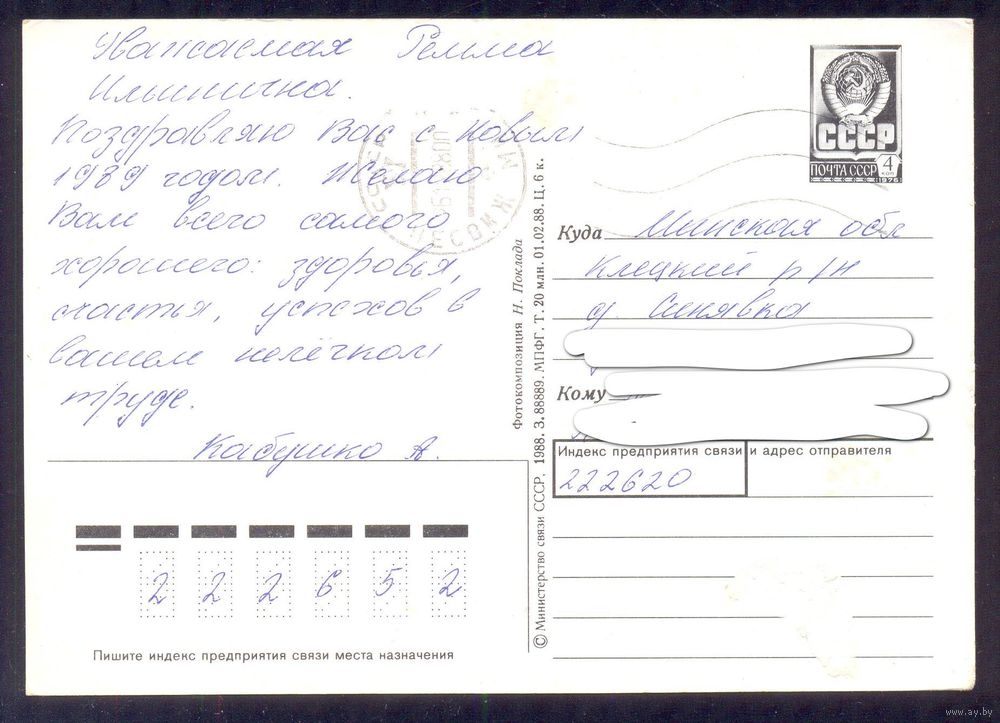 Уважаемая Ремма
Ильинична.
Поздравляю Вас с Новым
1989 годом. Желаю
Вам всего самого
хорошего: здоровья,
счастья, успехов в
вашем нелёгком
труде.
Кабушко А.
СССР
ПОЧТА СССР 4 КОП
1976
НЕСВИЖ
Куда Минская обл
Клецкий р/н
д. Синявка
Кому
Индекс предприятия связи и адрес отправителя
222620
Фотокомпозиция Н. Поклада
© Министерство связи СССР. 1988. З. 88889. МПФГ. Т. 20 млн. 01.02.88. Ц. 6 к.
222652
Пишите индекс предприятия связи места назначения
www.ay.by